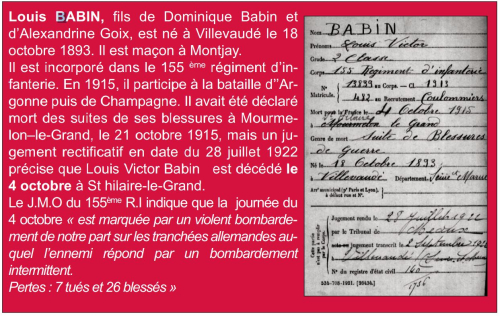 Louis BABIN, fils de Dominique Babin et
d'Alexandrine Goix, est né à Villevaudé le 18
octobre 1893. Il est maçon à Montjay.
Il est incorporé dans le 155 ème régiment d'in-
fanterie. En 1915, il participe à la bataille d''Ar-
gonne puis de Champagne. Il avait été déclaré
mort des suites de ses blessures à Mourme-
lon–le-Grand, le 21 octobre 1915, mais un ju-
gement rectificatif en date du 28 juillet 1922
précise que Louis Victor Babin est décédé le
4 octobre à St hilaire-le-Grand.
Le J.M.O du 155ème R.I indique que la journée du
4 octobre « est marquée par un violent bombarde-
ment de notre part sur les tranchées allemandes au-
quel l'ennemi répond par un bombardement
intermittent.
Pertes : 7 tués et 26 blessés »
Nom BABIN
Prénoms Louis Victor
Grade 2 Classe
Corps 155 Régiment d'infanterie
N° Matricule. 13899 au Corps. — Cl 1913
432 au Recrutement Coulommiers
Mort pour la France le 4 Octobre 1915
à le Grand
Genre de mort Suite de Blessures
de Guerre
Né le 18 Octobre 1893
à Villevaudé Département Seine & Marne
Arr' municipal (p' Paris et Lyon), à défaut rue et N°.
Jugement rendu le 28 Juillet 1922
par le Tribunal de Meaux
jugement transcrit le 2 Septembre 1922
à Villevaudé
N° du registre d'état civil 165
534-708-1921. [26434.]